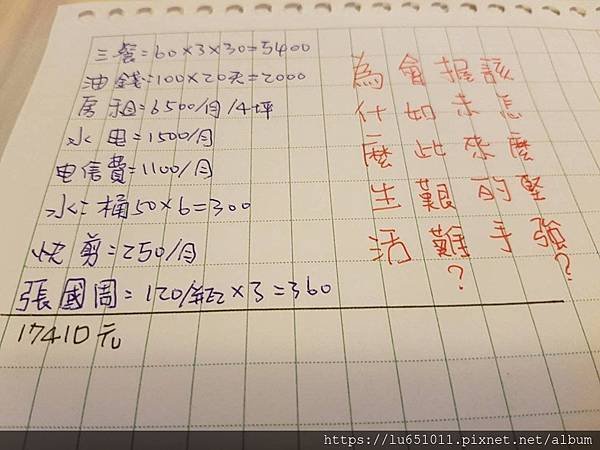 三餐=60×3×30=5400
油錢=100×20天=2000
房租=6500/月/4坪
水电=1500/月
电信費=1100/月
水=桶50×6=300
快剪=250/月
張國周=120/瓶×3=360
17410元
為什麼生活
會如此艱難?
握未來的手
該怎麼堅強?
https://lu651011.pixnet.net/album